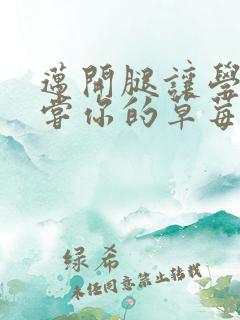 邁開腿讓學
嘗你的草莓
绿希
未经同意禁止转载